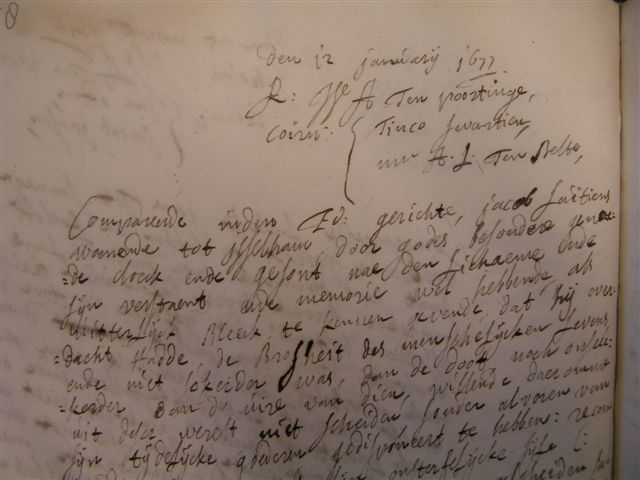 8
den 12 january 1677
R: Jfr A Ten poortinge,
Coirn: Tinco Swartien,
unn A. J. Ten Belte,
Comparende inden Ed: gerichte, jacob
woonende tot Isselham, door godes besondere gena=
=de cloeck ende gesont nae den lichaeme ende
sijn verstaent ende memorie wel hebbende, als
uitterlijck Bleeck te kennen gevende, dat hij over=
=dacht Hadde, de Brosheit des menschelijcken levens,
ende niet sekerder was, dan de doot noch onsee=
=kerder dan de uire van dien, willende daeromme
uit deser werelt niet scheiden sonder alvoren van
sijn tijdelijcke goederen gedisponeert te hebben: recom
onsterfelijcke sijle